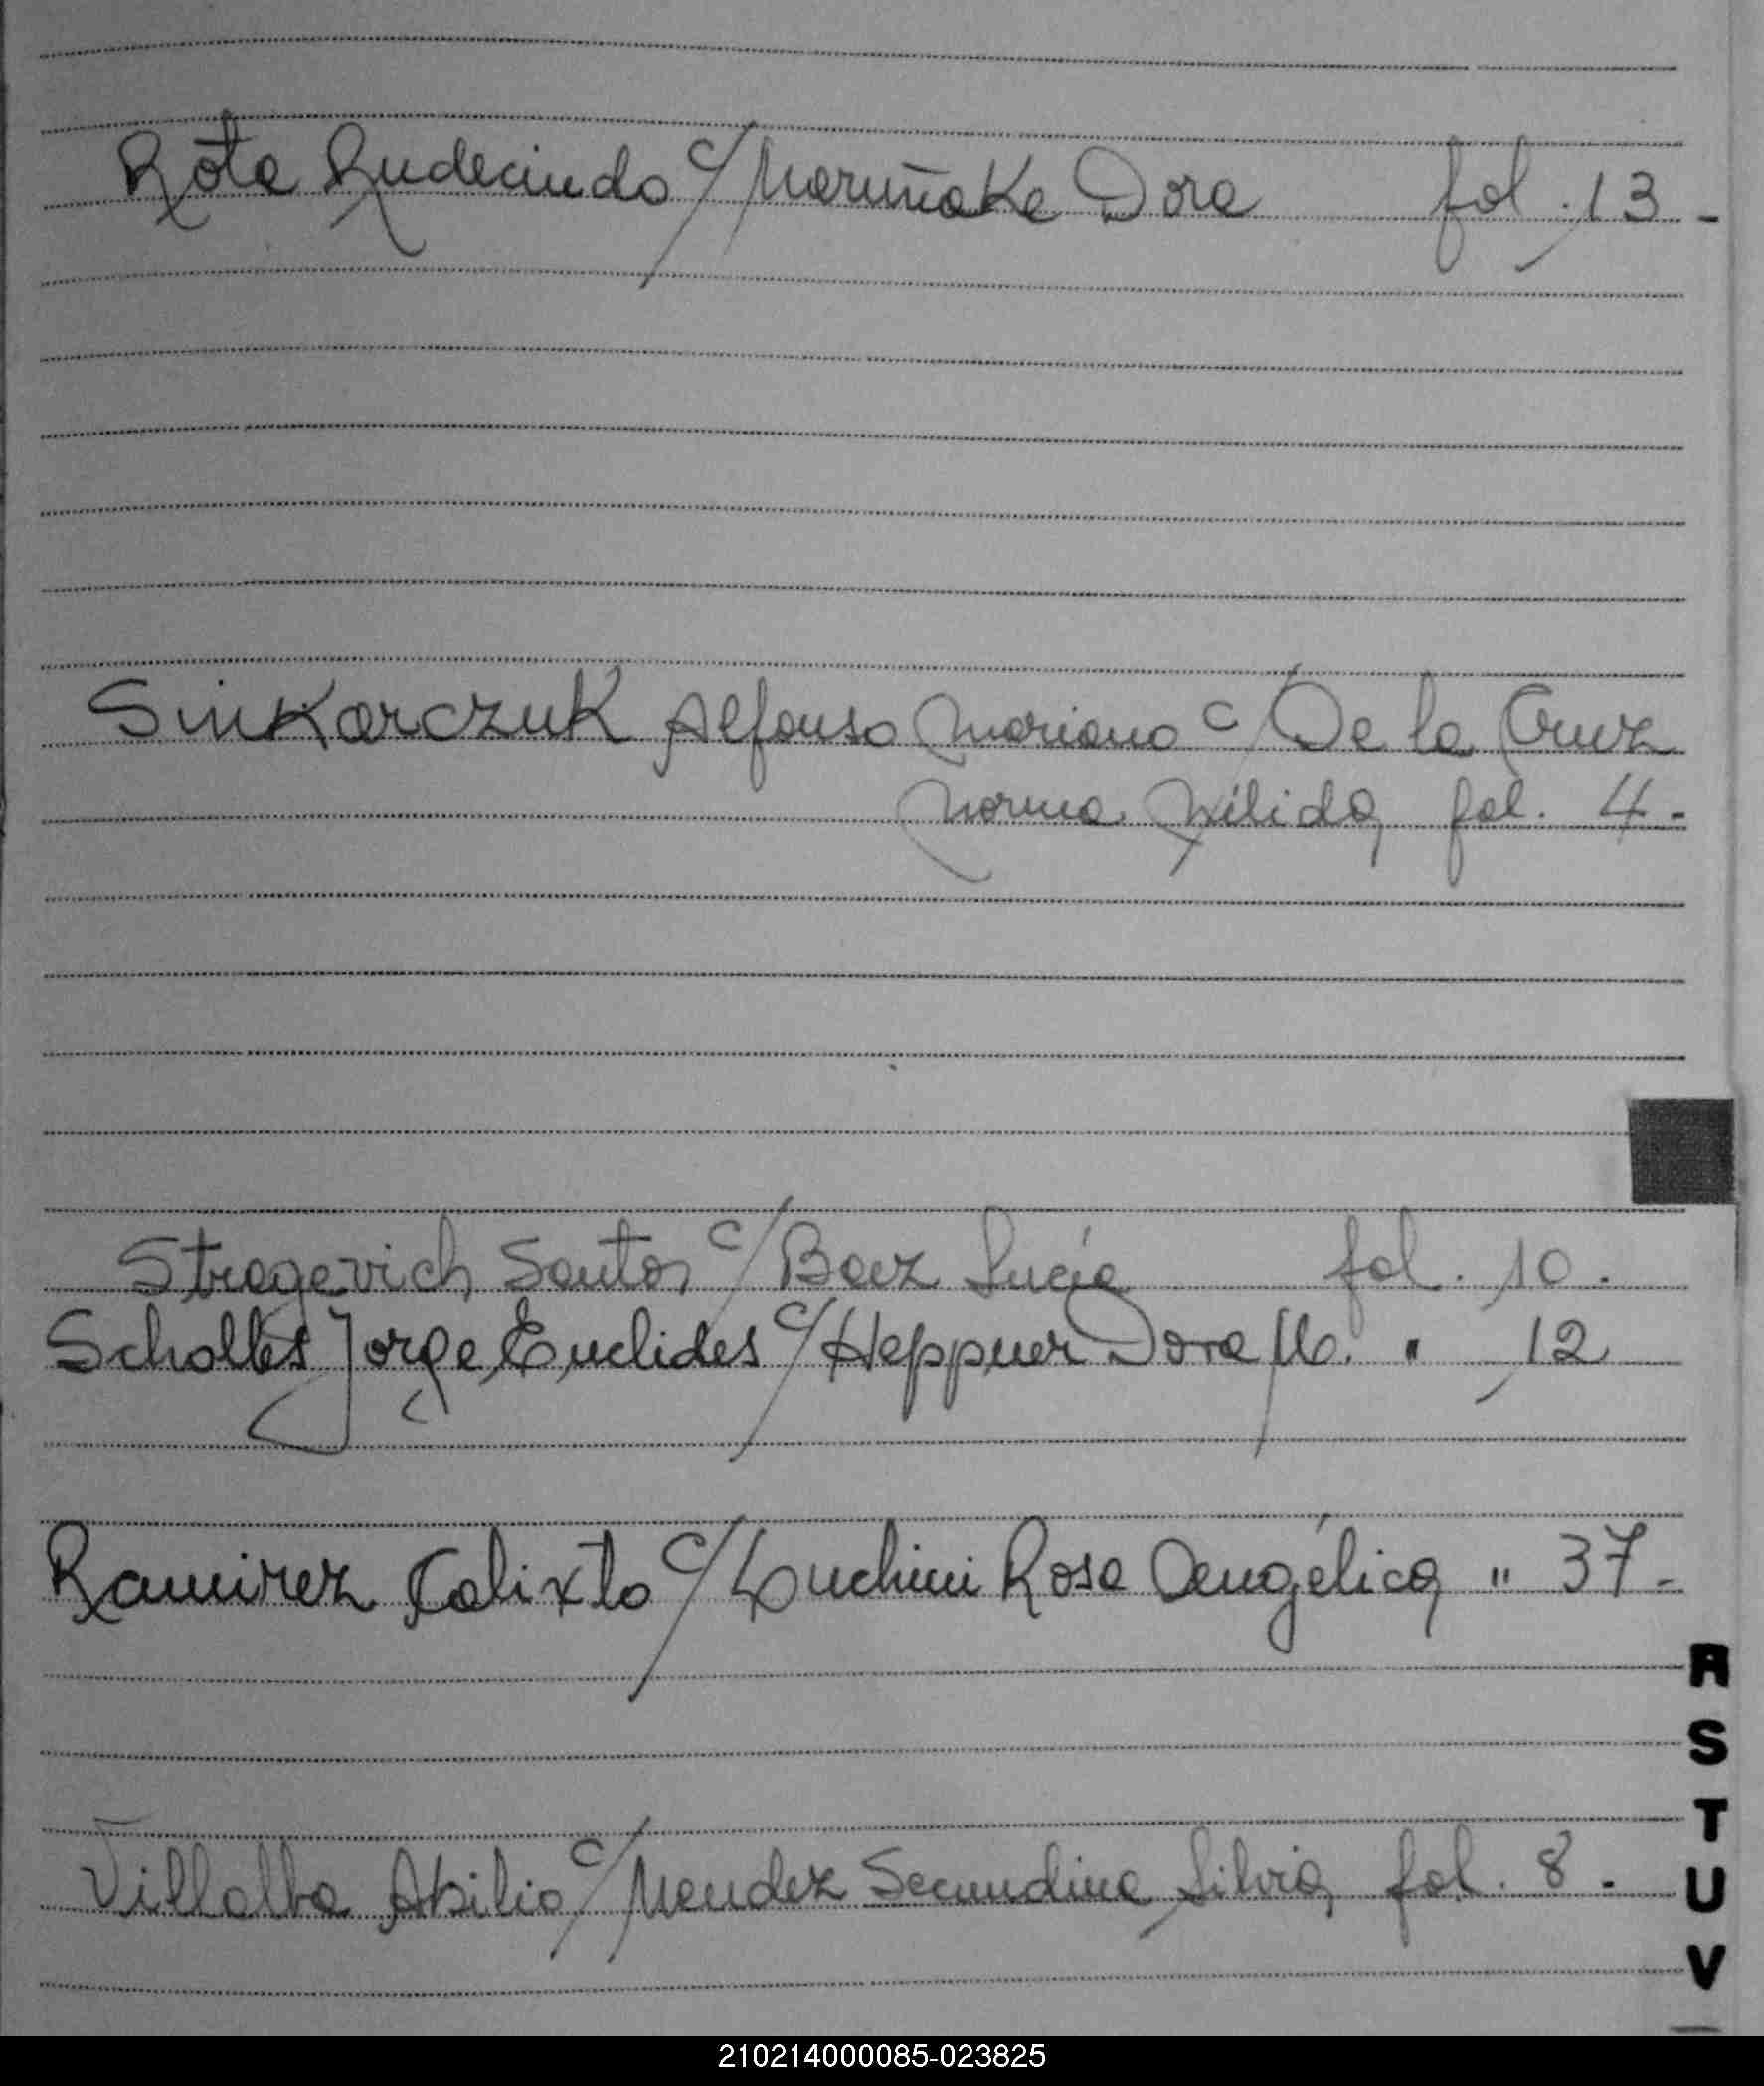 Rota Rudecindo c/ Maruñak Dora fol. 13 -
Sinkarczuk Alfonso Mariano c/ De la Cruz
Norma Nélida fol. 4 -
Stragevich Santos c/ Baez Lucía fol. 10 .
Scholles Jorge Euclides c/ Heppner Dora M. " 12
Ramirez Calixto c/ Luchini Rosa Angélica " 37 -
Villalba Abilio c/ Mendez Secundina Silvia fol. 8 .
R
S
T
U
V
210214000085-023825